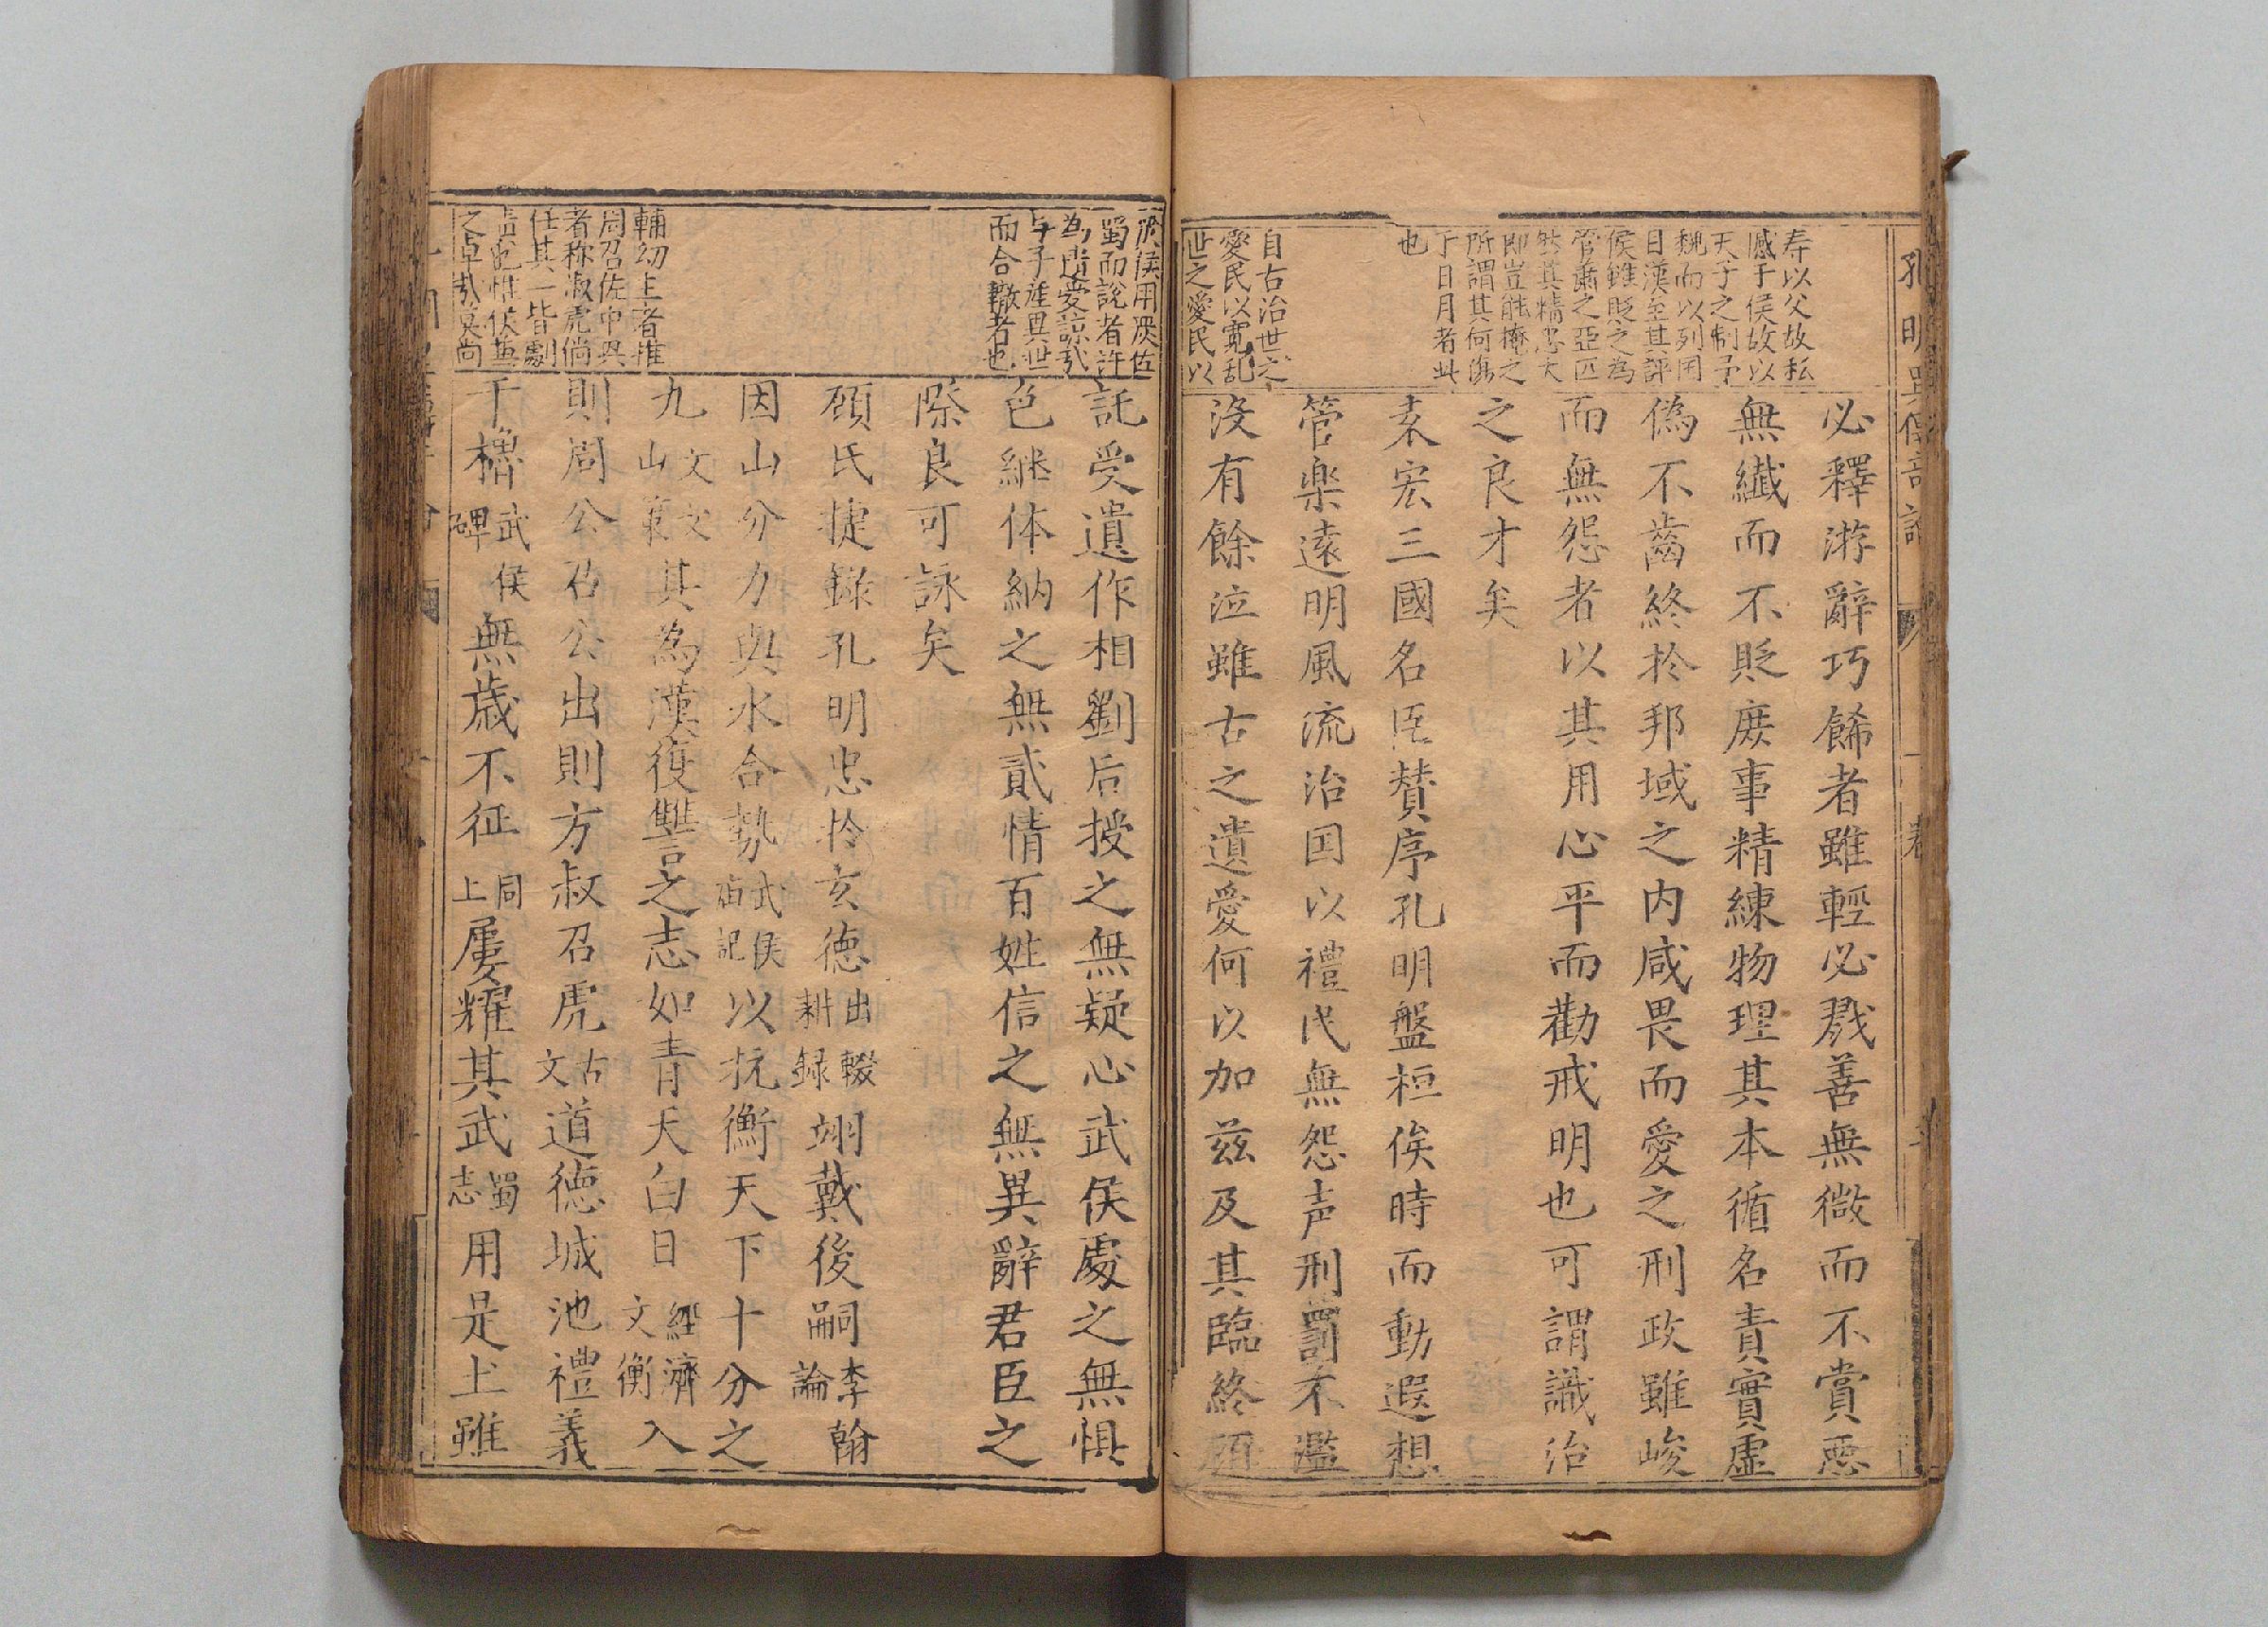 寿以父故私
憾于侯故以
天子之制予
魏而以列国
目漢至其評
侯雖貶之為
管蕭之亞匹
然其精忠大
節豈能掩之
所謂其何傷
于日月者此
也
自古治世之
愛民以寬乱
世之愛民以
必釋游辭巧餙者雖輕必戮善無微而不賞惡
無纖而不貶庶事精練物理其本循名責實虛
偽不齒終於邦域之内咸畏而愛之刑政雖峻
而無怨者以其用心平而勸戒明也可謂識治
之良才矣
袁宏三國名臣賛序孔明盤桓俟時而動遐想
管楽遠明風流治国以禮民無怨声刑罰不濫
没有餘泣雖古之遺愛何以加兹及其臨終顧
蜀而說者許
為遺愛諒哉
与子産異世
而合轍者也
輔幼主者推
周召佐中興
者称淑虎倘
任其一皆劇
託受遺作相劉后授之無疑心武侯處之無惧
色継体納之無貳情百姓信之無異辭君臣之
際良可詠矣
顾氏捷録孔明忠扵玄徳出耕輟録翊戴後嗣李翰論
因山分力與水合勢武侯庙記以抗衡天下十分之
九文山文文其為漢復讐之志如青天白日經濟文衡入
則周公召公出則方叔召虎古文道徳城池禮義
干櫓武侯碑無歳不征同上屢耀其武蜀志用是上雖